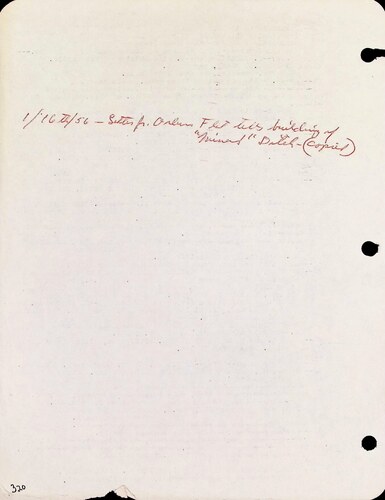 1/16th/56 – Letter fr. Orleans Flat tells building of
"Miners" Ditch – (Copied)
320